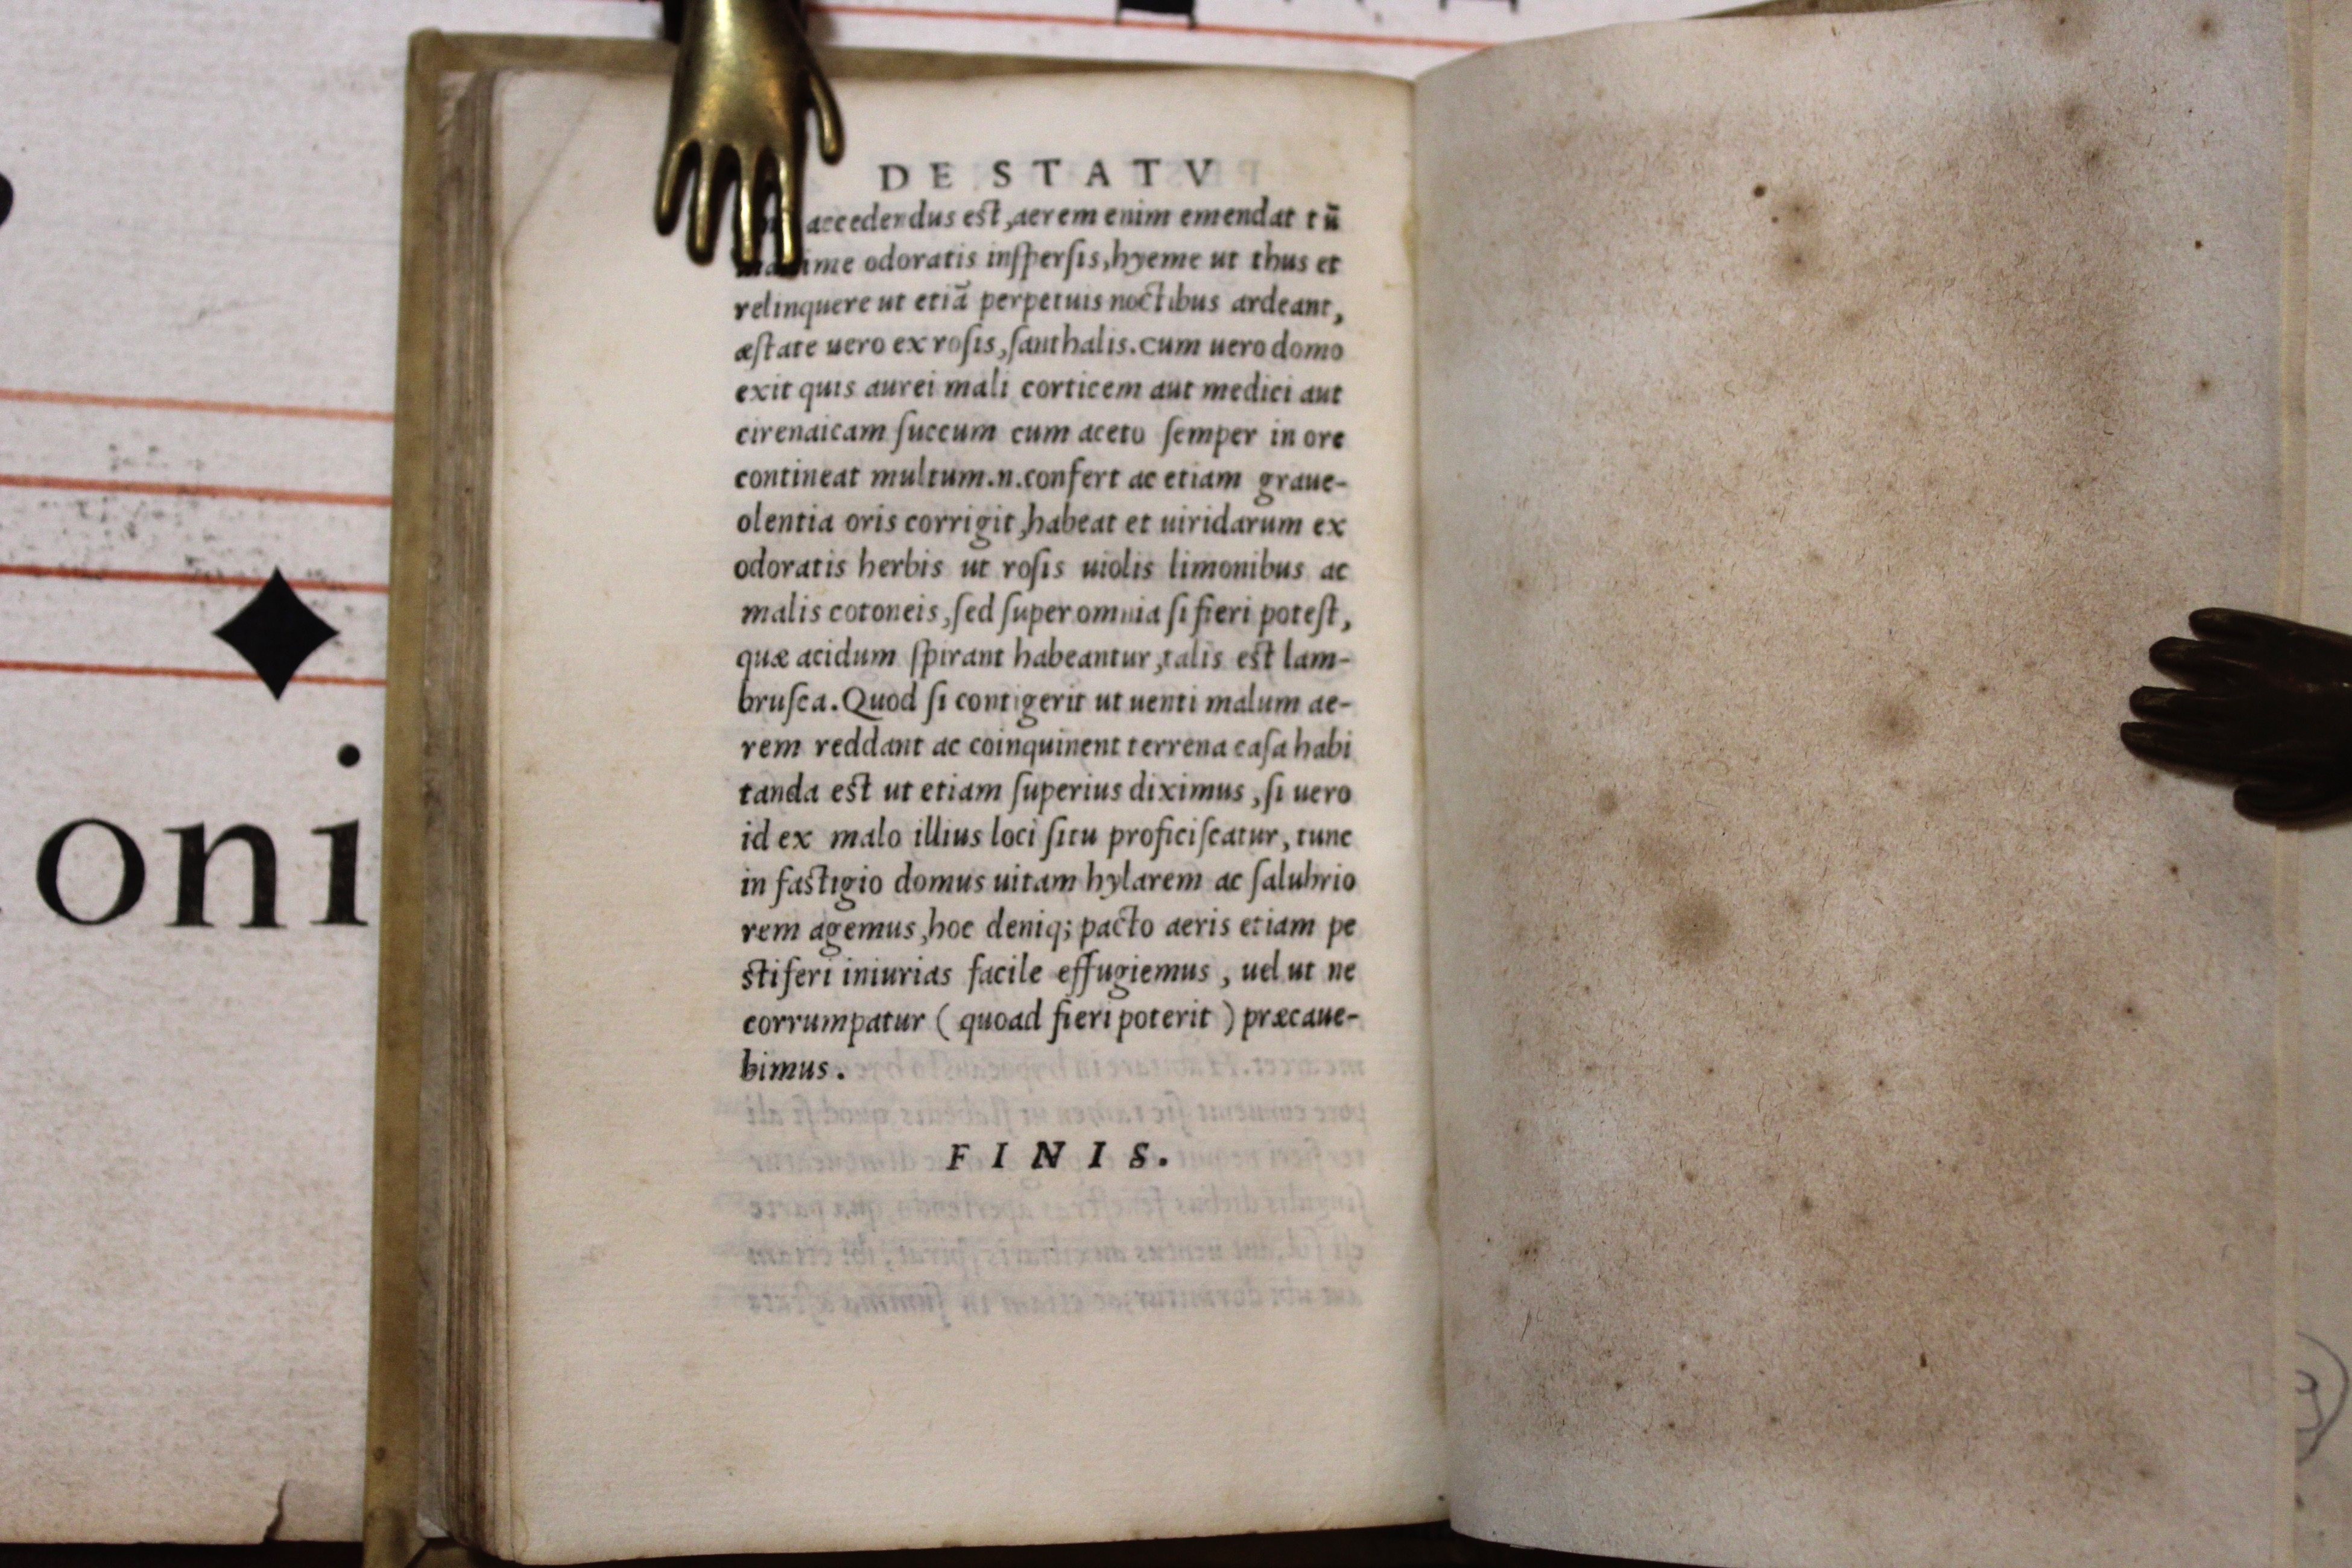 DE STATV
accedendus est, aerem enim emendat tū
odoratis inſperſis, hyeme ut thus et
relinquere ut etiā perpetuis noctibus ardeant,
æſtate uero ex roſis, ſanthalis. cum uero domo
exit quis aurei mali corticem aut medici aut
cirenaicam ſuccum cum aceto ſemper in ore
contineat multum.n.confert ac etiam graue-
olentia oris corrigit, habeat et uiridarum ex
odoratis herbis ut roſis uiolis limonibus ac
malis cotoneis, ſed ſuper omnia ſi fieri poteſt,
quæ acidum ſpirant habeantur, talis est lam-
bruſca. Quod ſi contigerit ut uenti malum ae-
rem reddant ac coinquinent terrena caſa habi
tanda est ut etiam ſuperius diximus, ſi uero
id ex malo illius loci ſitu proficiſcatur, tunc
in fastigio domus uitam hylarem ac ſalubrio
rem agemus, hoc deniq; pacto aeris etiam pe
stiferi iniurias facile effugiemus, uel ut ne
corrumpatur ( quoad fieri poterit ) præcaue-
bimus.
FINIS.
oni